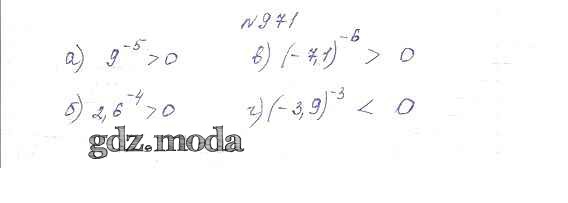 №971
а) 9^-5 > 0 в) (-7,1)^-6 > 0
б) 2,6^-4 > 0 г) (-3,9)^-3 < 0
gdz.moda